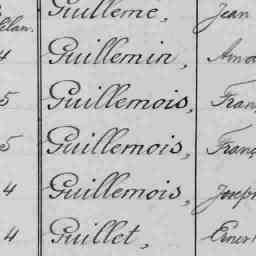 Guilleme, Jean
4 Guillemin,
5 Guillemois, Fran
5 Guillemois, Franç
4 Guillemois, Joseph
4 Guillet, Ernest